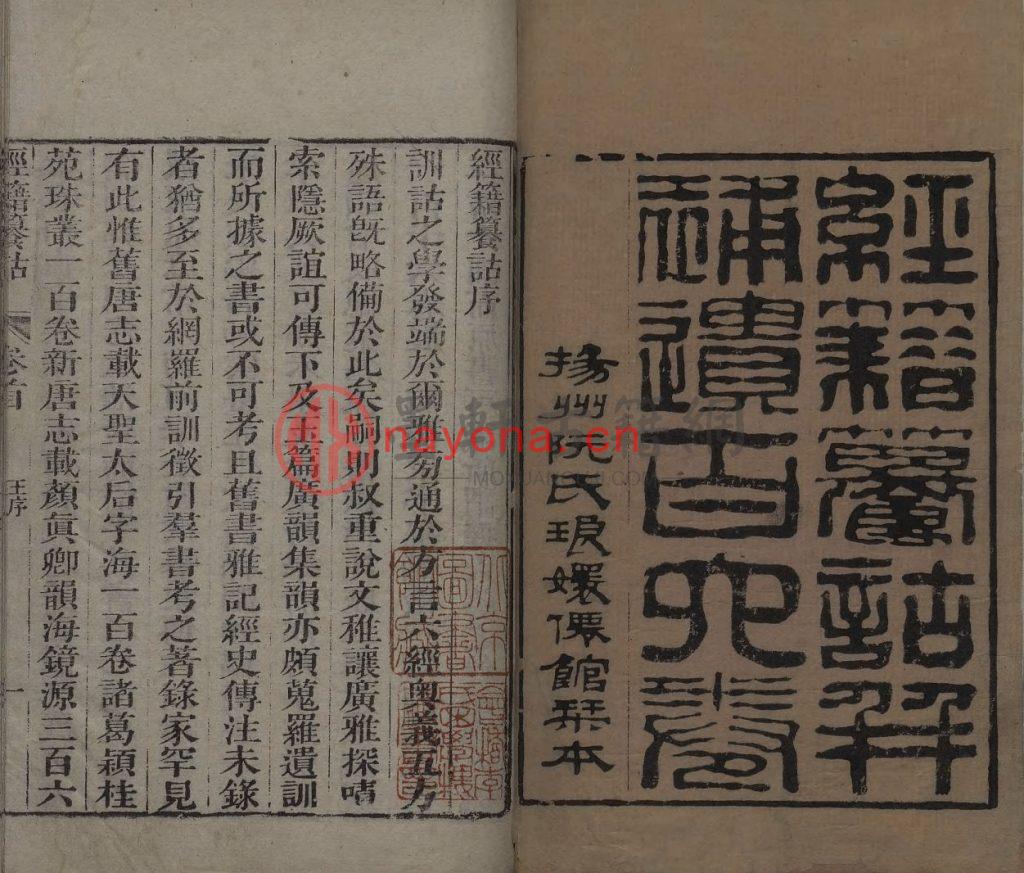 經籍籑詁并
補遺百六卷
揚州阮氏琅嬛僊館栞本
經籍籑詁序
訓詁之學發端於爾雅旁通於方言六經奥義五方
殊語旣略備於此矣嗣則叔重說文稚讓廣雅探嘖
索隱厥誼可傳下及玉篇廣韻集韻亦頗蒐羅遺訓
而所據之書或不可考且舊書雅記經史傳注未錄
者猶多至於網羅前訓徵引羣書考之著錄家罕見
有此惟舊唐志載天聖太后字海一百卷諸葛潁桂
苑珠叢一百卷新唐志載顏眞卿韻海鏡源三百六
經籍籑詁 卷首 王序 一
nayona.cn